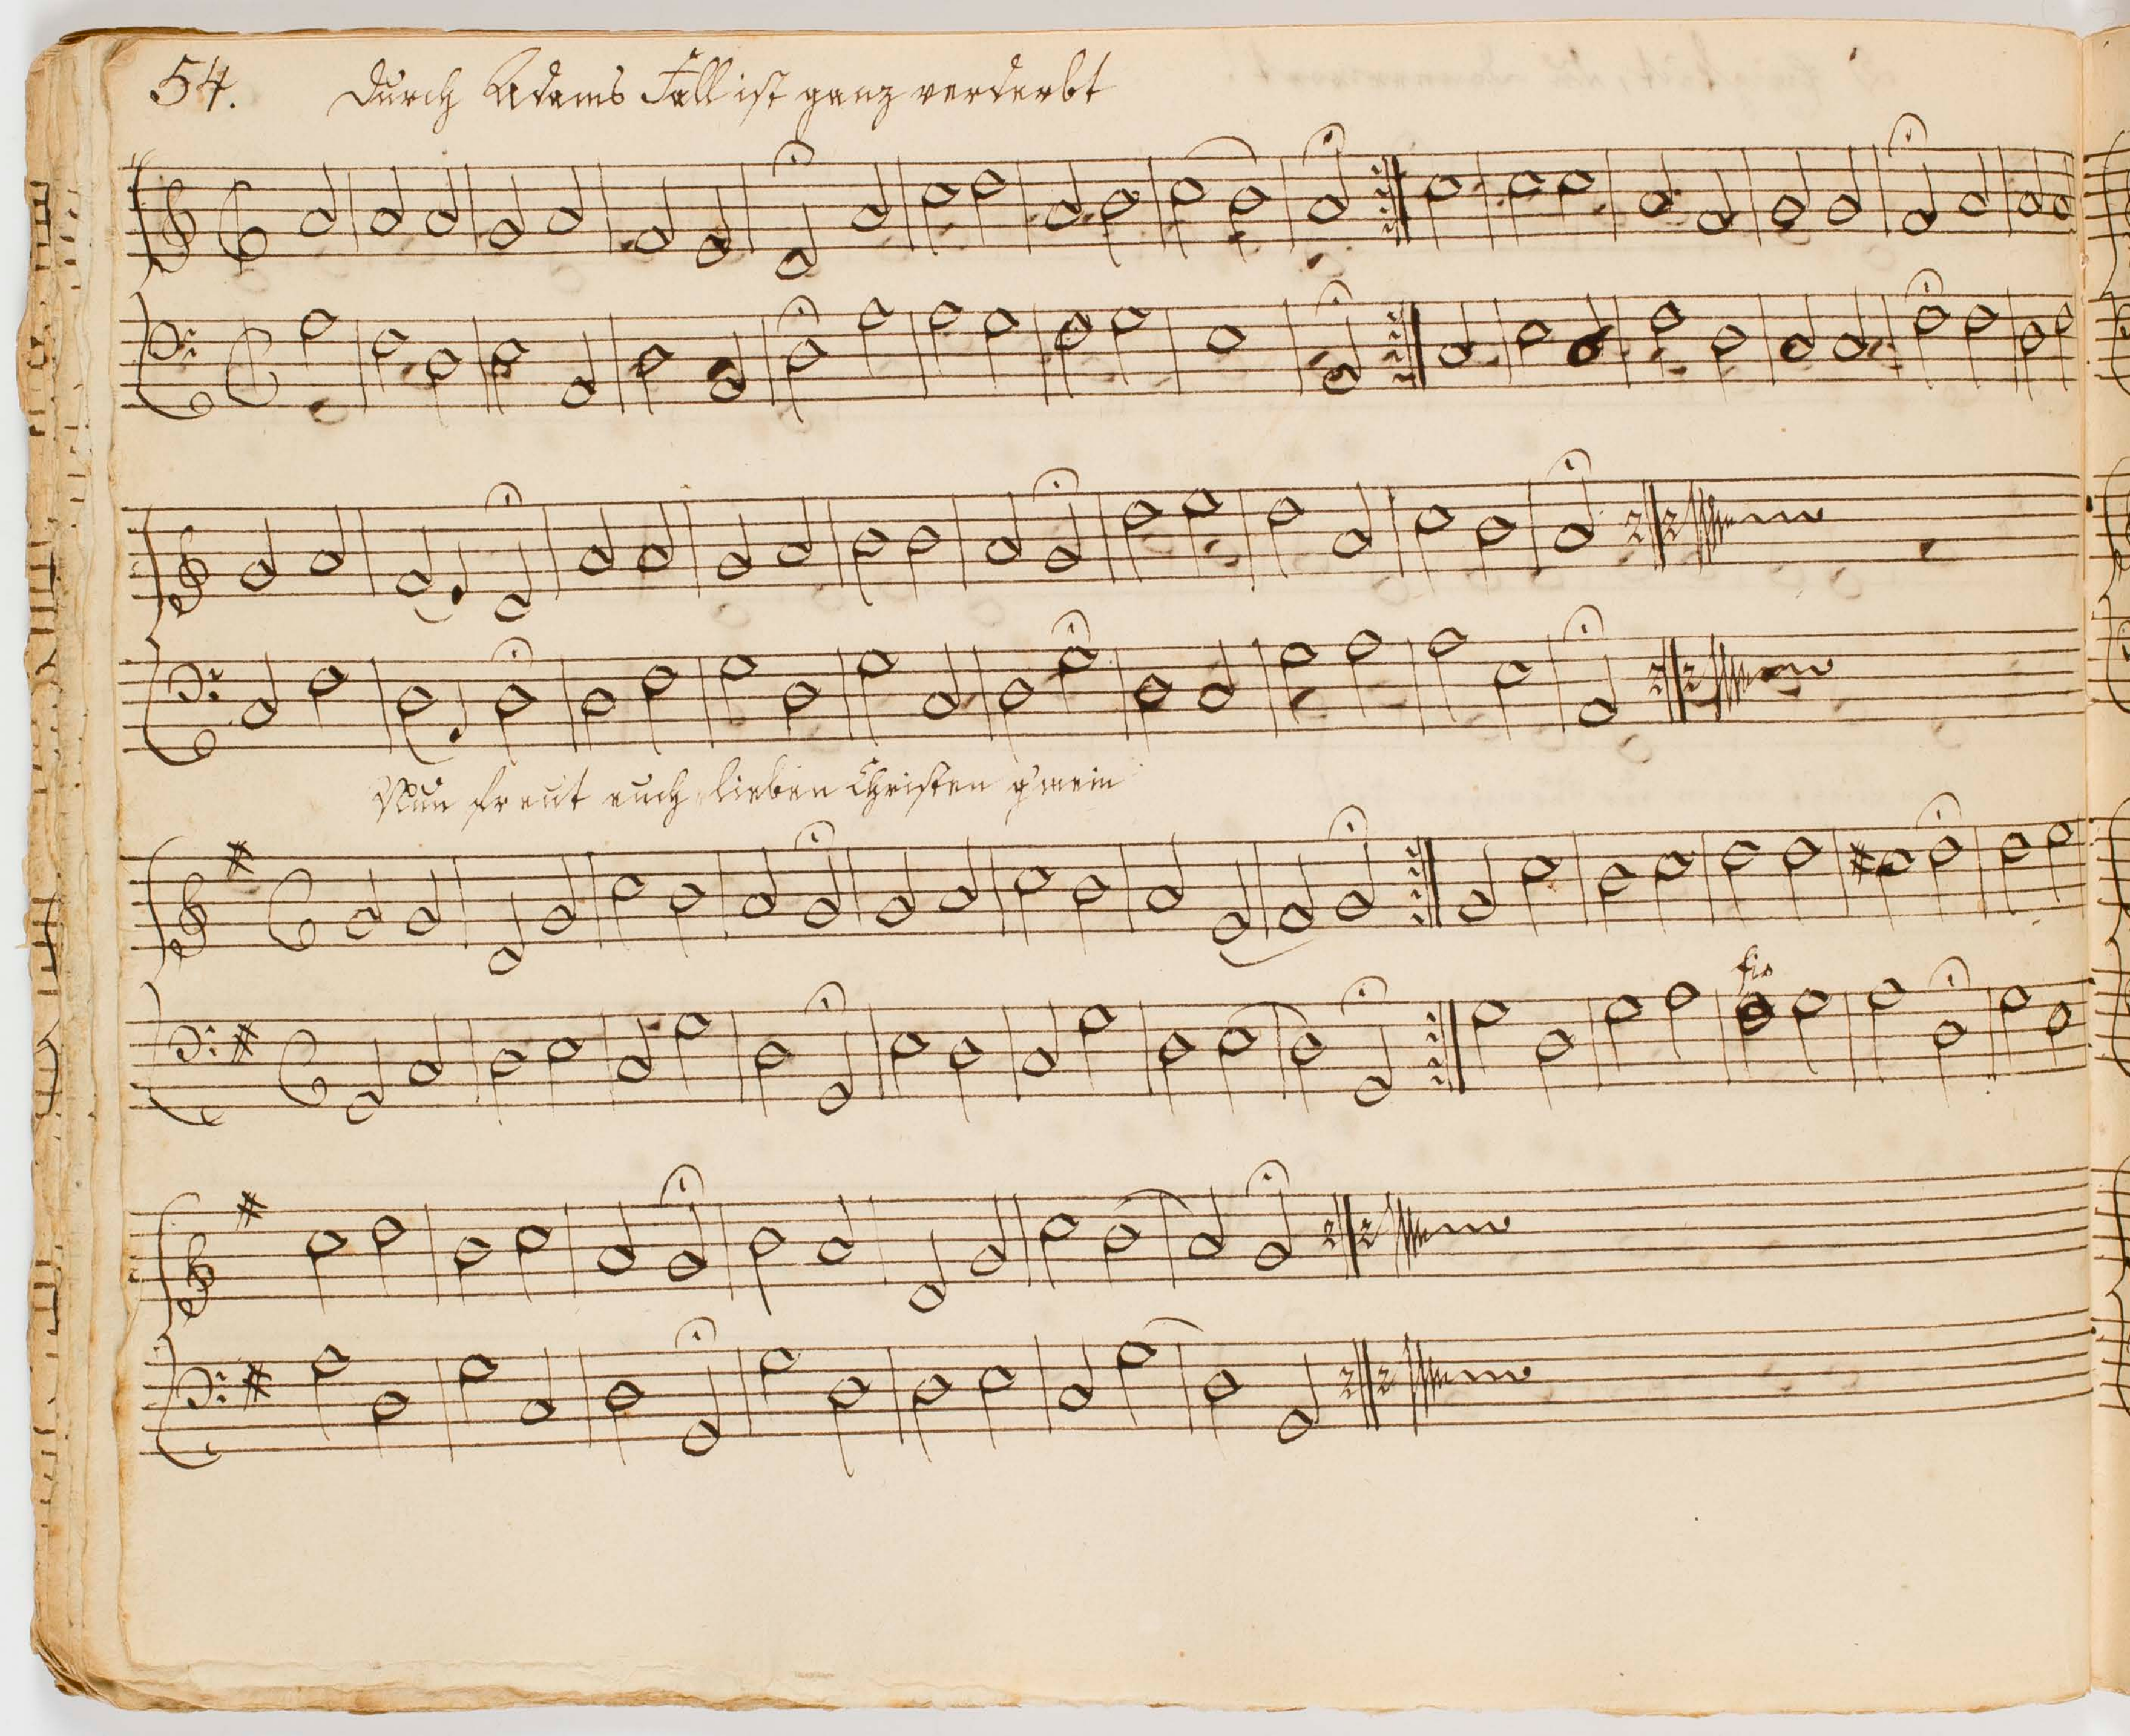 54. Durch Adams Fall ist ganz verderbt
Nun freut euch lieben Christen g'mein
fis